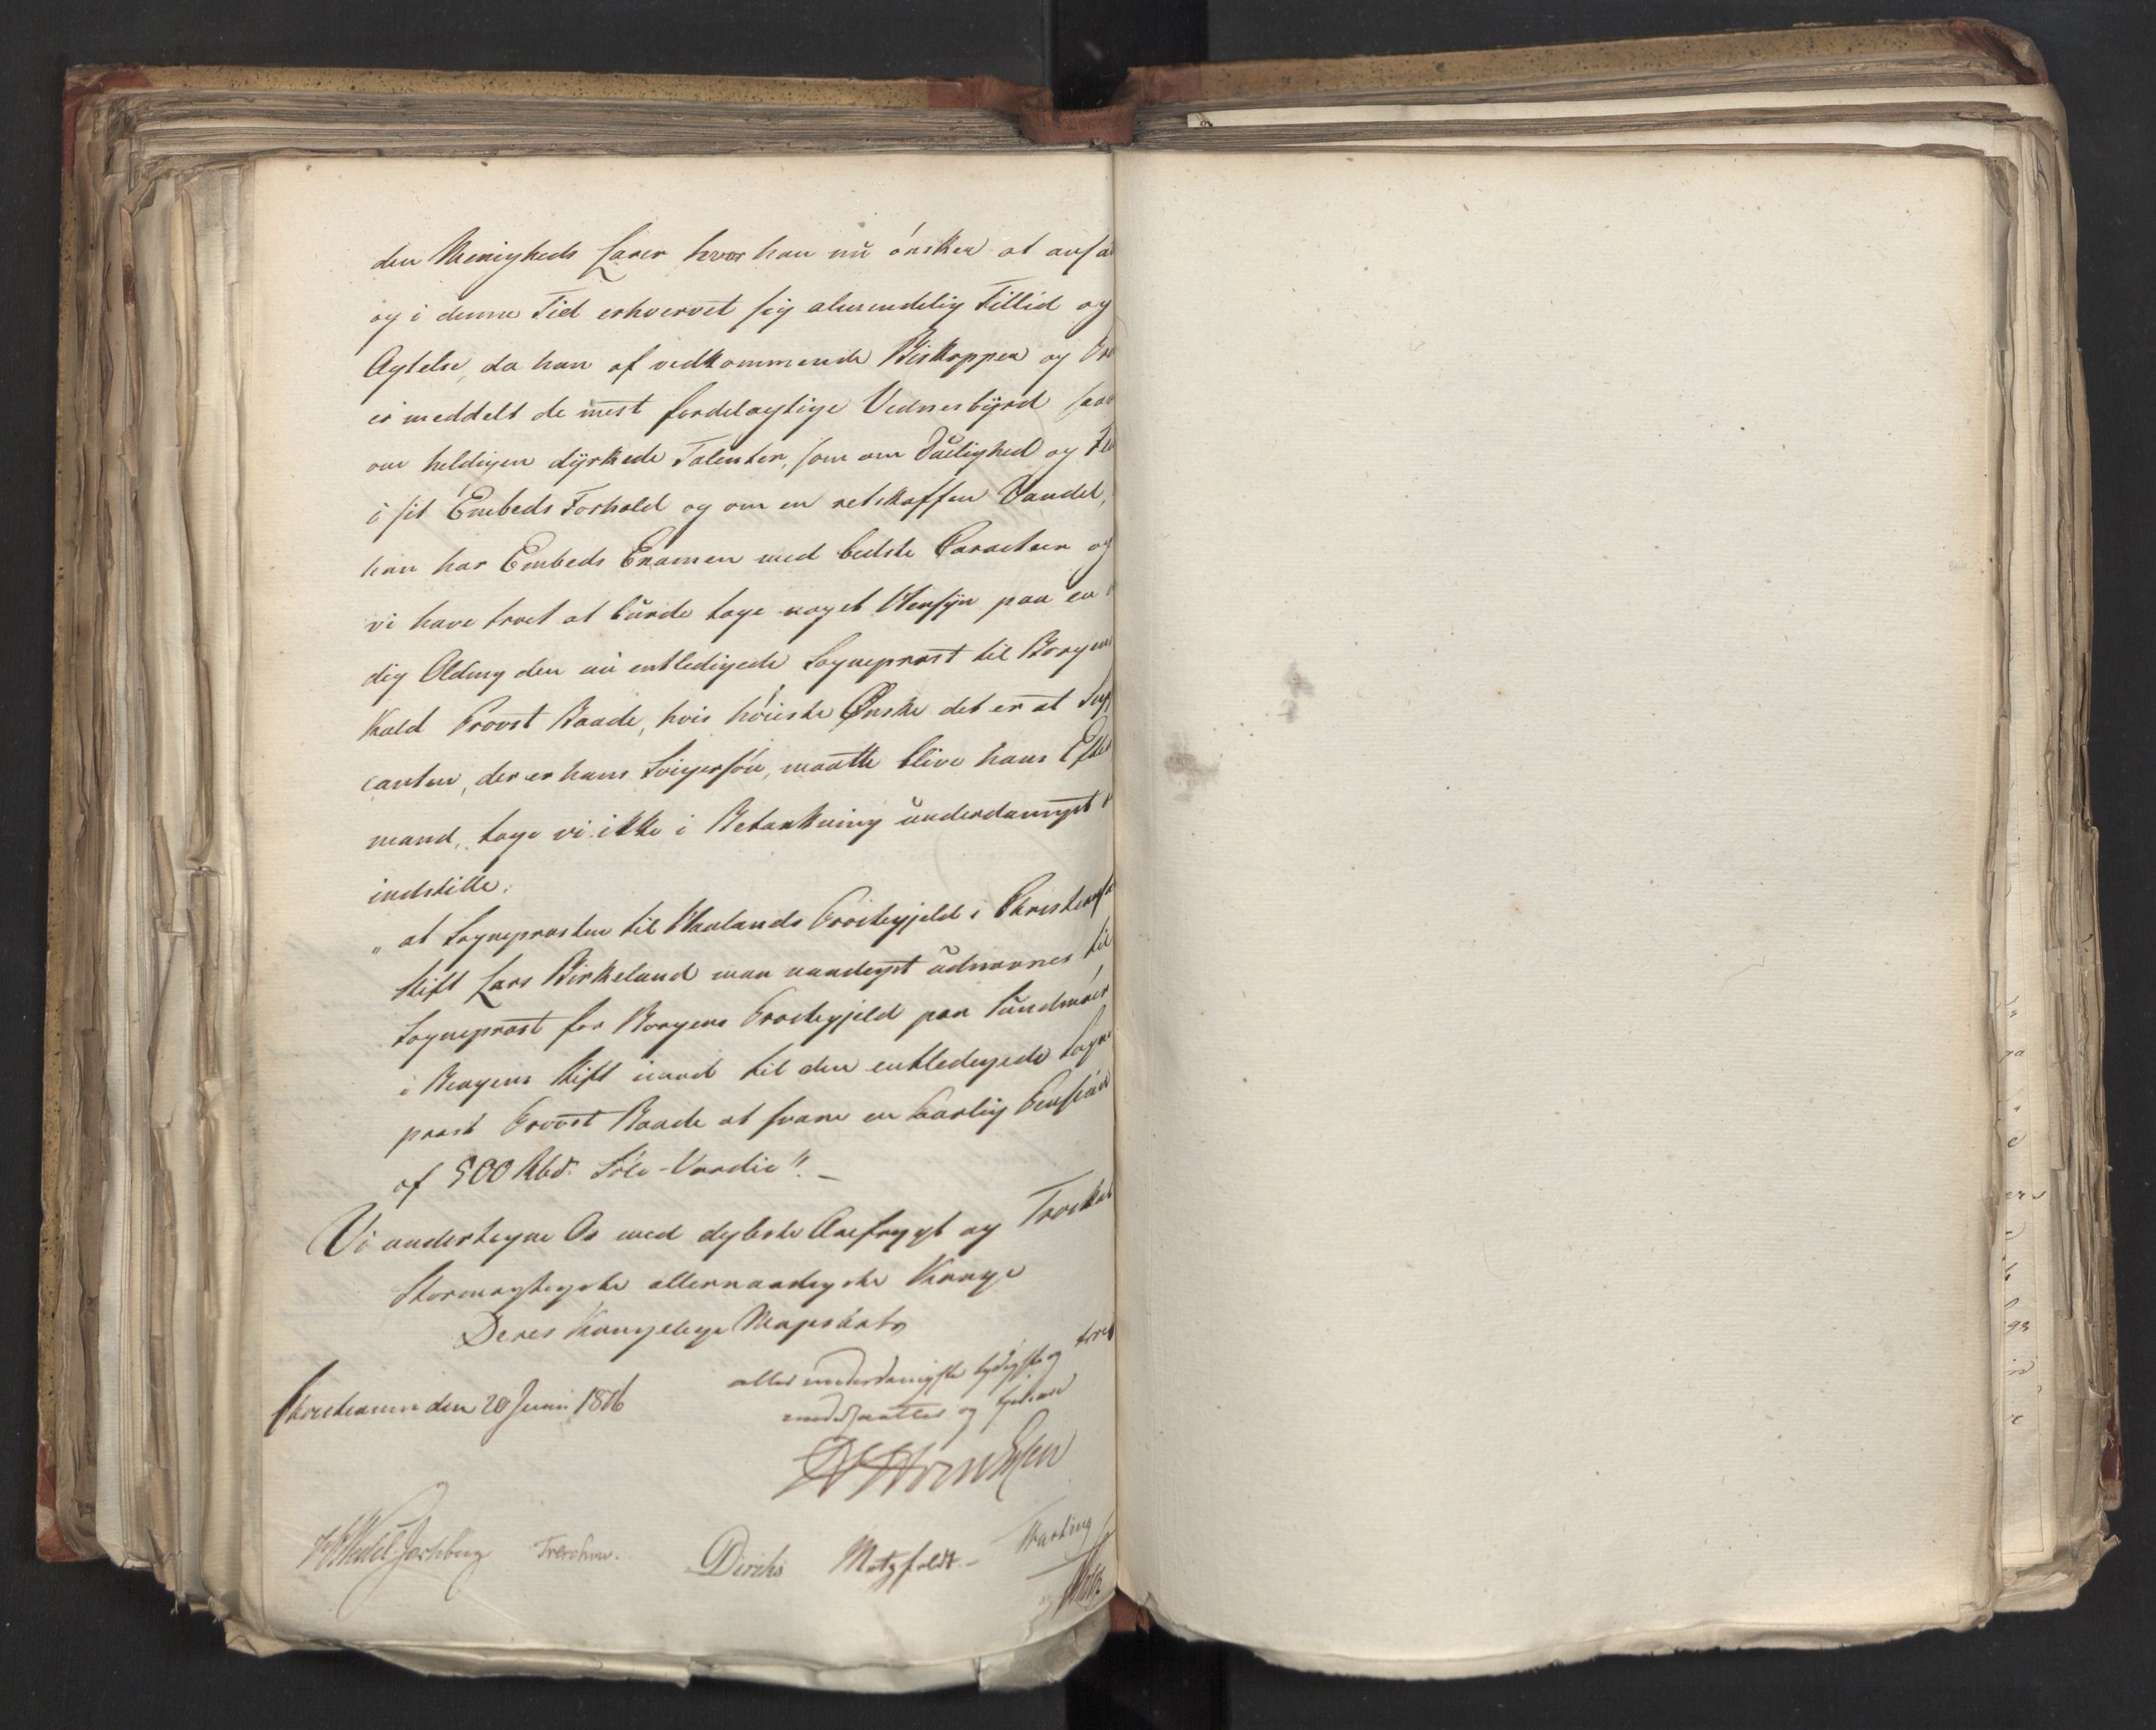 den Menigheds Lærer hvor han nu ønsker at ansæ
og i denne Tid erhvervet sig almindelig Tillid og
Agtelse, da han af vedkommende Biskopper og Pro
er meddelt de mest fordelagtige Vidnesbyrd saa
om heldigen dyrkede Talenter, som om Duelighed og Fli
i sit Embeds Forhold og om en retskaffen Vandel,
han har Embeds Examen med bedste Caracteer og
vi have troet at burde tage noget Hensyn paa en
dig Olding den nu entledigede Sognepræst til Borgens
Kald Provst Baade, hvis høieste Ønske det er at Sup
canten, der er hans Svigersøn, maatte blive hans Efter
mand, tage vi ikke i Betænkning underdanigst
indstille:
„at Sognepræsten til Haalands Præstegjeld i Christians
Stift Lars Birkeland maa naadigst udnævnes til
Sognepræst for Borgens Præstegjeld paa Sundmøer
i Bergens Stift imod til den entledigede Sogne
præst Provst Baade at svare en aarlig Pension
af 500 Rbd. Sølv-Værdie". –
Vi undertegne Os med dybeste Ærefrygt og Troskab
Stormægtigste allernaadigste Konge
Deres Kongelige Majestæts
allerunderdanigste lydigste og tro
undersaatter og tjenere
Christiania den 20 Juni 1816
Wedel Jarlsberg Treschow. Diriks Motzfeldt. –